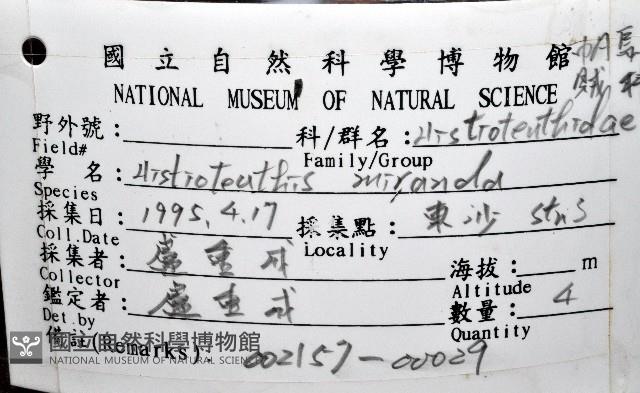 國立自然科學博物館
NATIONAL MUSEUM OF NATURAL SCIENCE
帆烏賊科
野外號： 科/群名：Histioteuthidae
Field# Family/Group
學 名：Histioteuthis miranda
Species
採集日：1995.4.17 採集點：東沙 stn3
Coll.Date Locality
採集者：盧重成 海拔： m
Collector Altitude
鑑定者：盧重成 數量：4
Det.by Quantity
備註(Remarks): 002157-00029
國立自然科學博物館
NATIONAL MUSEUM OF NATURAL SCIENCE